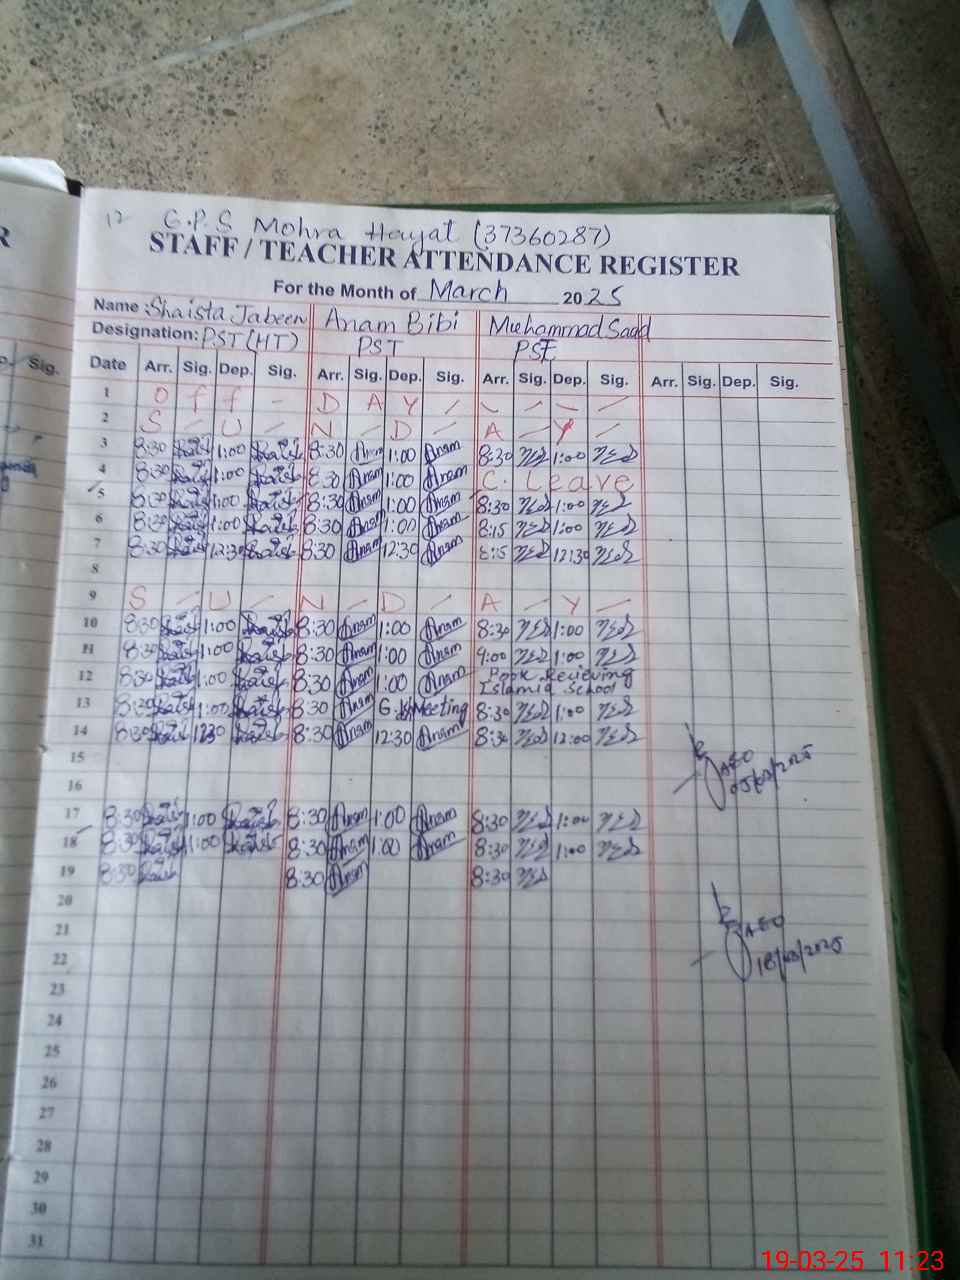 12
G.P.S Mohra Hayat (37360287)
STAFF / TEACHER ATTENDANCE REGISTER
For the Month of March 2025
Name : Shaista Jabeen Anam Bibi Muhammad Saad
Designation: PST (HT) PST PST
Sig. Date Arr. Sig. Dep. Sig. Arr. Sig. Dep. Sig. Arr. Sig. Dep. Sig. Arr. Sig. Dep. Sig.
1 O f f - D A Y
2 S U N D A Y
3 8:30 1:00 8:30 Anam 1:00 Anam 8:30 1:00
4 8:30 1:00 8:30 Anam 1:00 Anam C. Leave
5 8:30 1:00 8:30 Anam 1:00 Anam 8:30 1:00
6 8:30 1:00 8:30 Anam 1:00 Anam 8:15 1:00
7 8:30 12:30 8:30 Anam 12:30 Anam 8:15 12:30
8
9 S U N D A Y
10 8:30 1:00 8:30 Anam 1:00 Anam 8:30 1:00
11 8:30 1:00 8:30 Anam 1:00 Anam 9:00 1:00
12 8:30 1:00 8:30 Anam 1:00 Anam Book Recieving
Islamia School
13 8:30 1:00 8:30 Anam Meeting 8:30 1:00
14 8:30 1230 8:30 Anam 12:30 Anam 8:30 12:00
15
AEO
16
17 8:30 1:00 8:30 Anam 1:00 Anam 8:30 1:00
18 8:30 1:00 8:30 Anam 1:00 Anam 8:30 1:00
19 8:30 8:30 Anam 8:30
20
21
AEO
22
18/03/2025
23
24
25
26
27
28
29
30
31
19-03-25 11:23